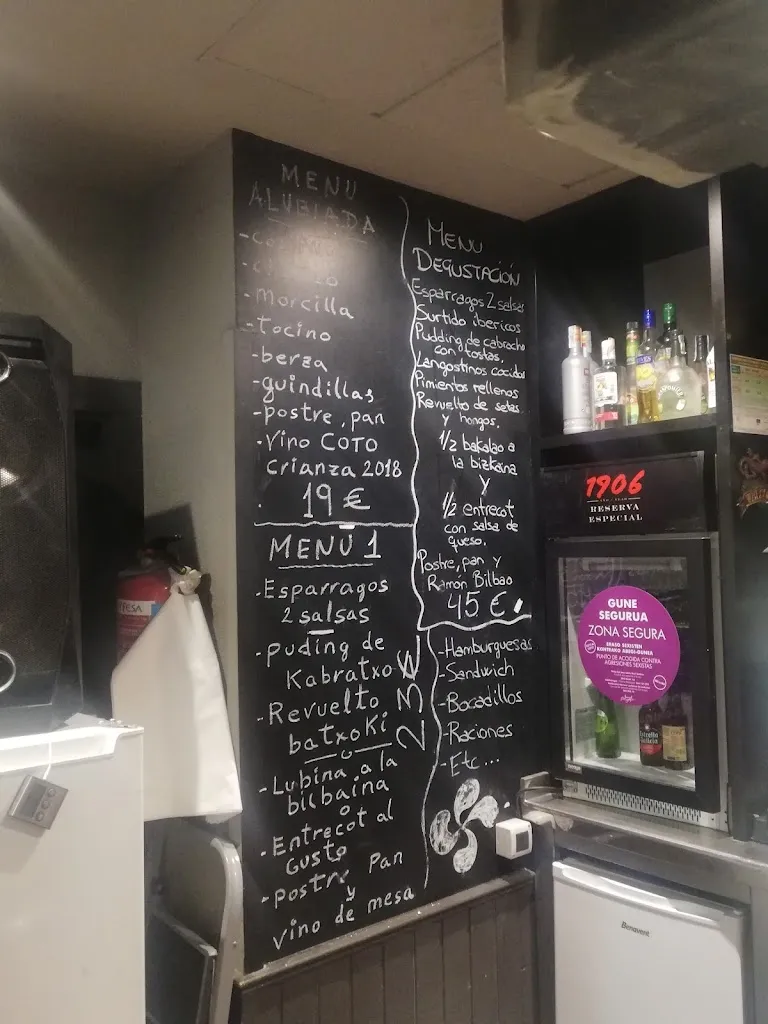 MENU
ALUBIADA
-morcilla
-tocino
-berza
-guindillas
-postre, pan
-Vino COTO
crianza 2018
19 €
MENÚ 1
-Esparragos
2 salsas
-puding de
Kabratxo
-Revuelto
batxoki
-Lubina a la
bilbaina
o
-Entrecot al
Gusto
-postre Pan
y
vino de mesa
23€
MENU
DEGUSTACIÓN
Esparragos 2 salsas
Surtido ibericos
Pudding de cabracho
con tostas.
Langostinos cocidos
Pimientos rellenos
Revuelto de setas
y hongos.
1/2 bakalao a
la bizkaina
Y
1/2 entrecot
con salsa de
queso.
Postre, pan y
Ramón Bilbao
45 €
-Hamburguesas
-Sandwich
-Bocadillos
-Raciones
-Etc...
1906
RESERVA
ESPECIAL
GUNE
SEGURUA
ZONA SEGURA
ERASO SEXISTEN
KONTRAKO HARRERA-GUNEA
PUNTO DE ACOGIDA CONTRA
AGRESIONES SEXISTAS
Benavent